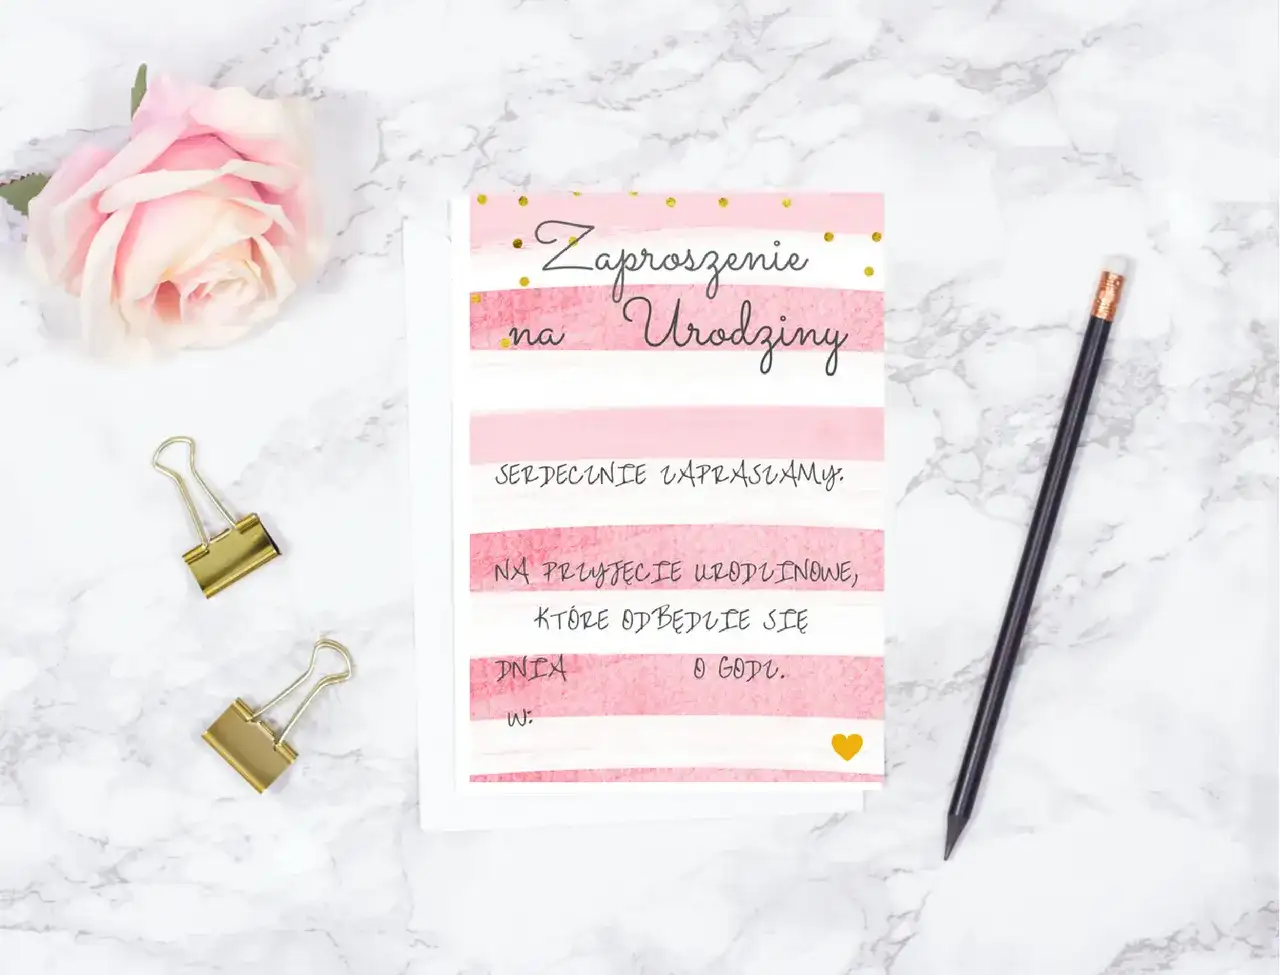 Zaproszenie
na Urodziny
SERDECZNIE ZAPRASZAMY:
NA PRZYJĘCIE URODZINOWE,
KTÓRE ODBĘDZIE SIĘ
DNIA O GODZ.
W: